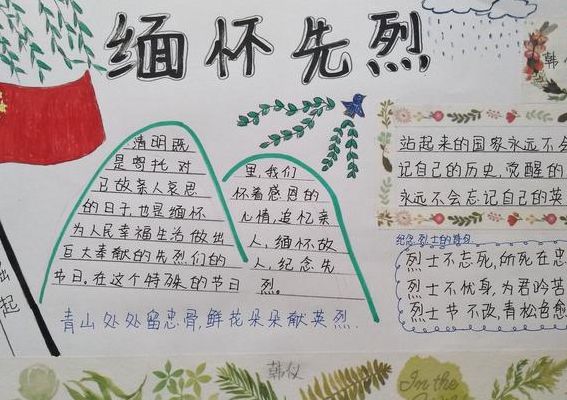 缅怀先烈
韩
清明既
是寄托对
已故亲人哀思
的日子,也是缅怀
为人民幸福生活做出
巨大奉献的先烈们的
节日。在这个特殊的节日
里,我们
怀着感恩的
心情,追忆亲
人,缅怀故
人,纪念先
烈。
站起来的国家永远不会
记自己的历史,觉醒的
永远不会忘记自己的英
纪念烈士的诗句
烈士不忘死,所死在忠
烈士不忧身,为君吟苦
烈士节不改,青松色愈
起
青山处处留忠骨,鲜花朵朵献英烈.
韩仪
In the